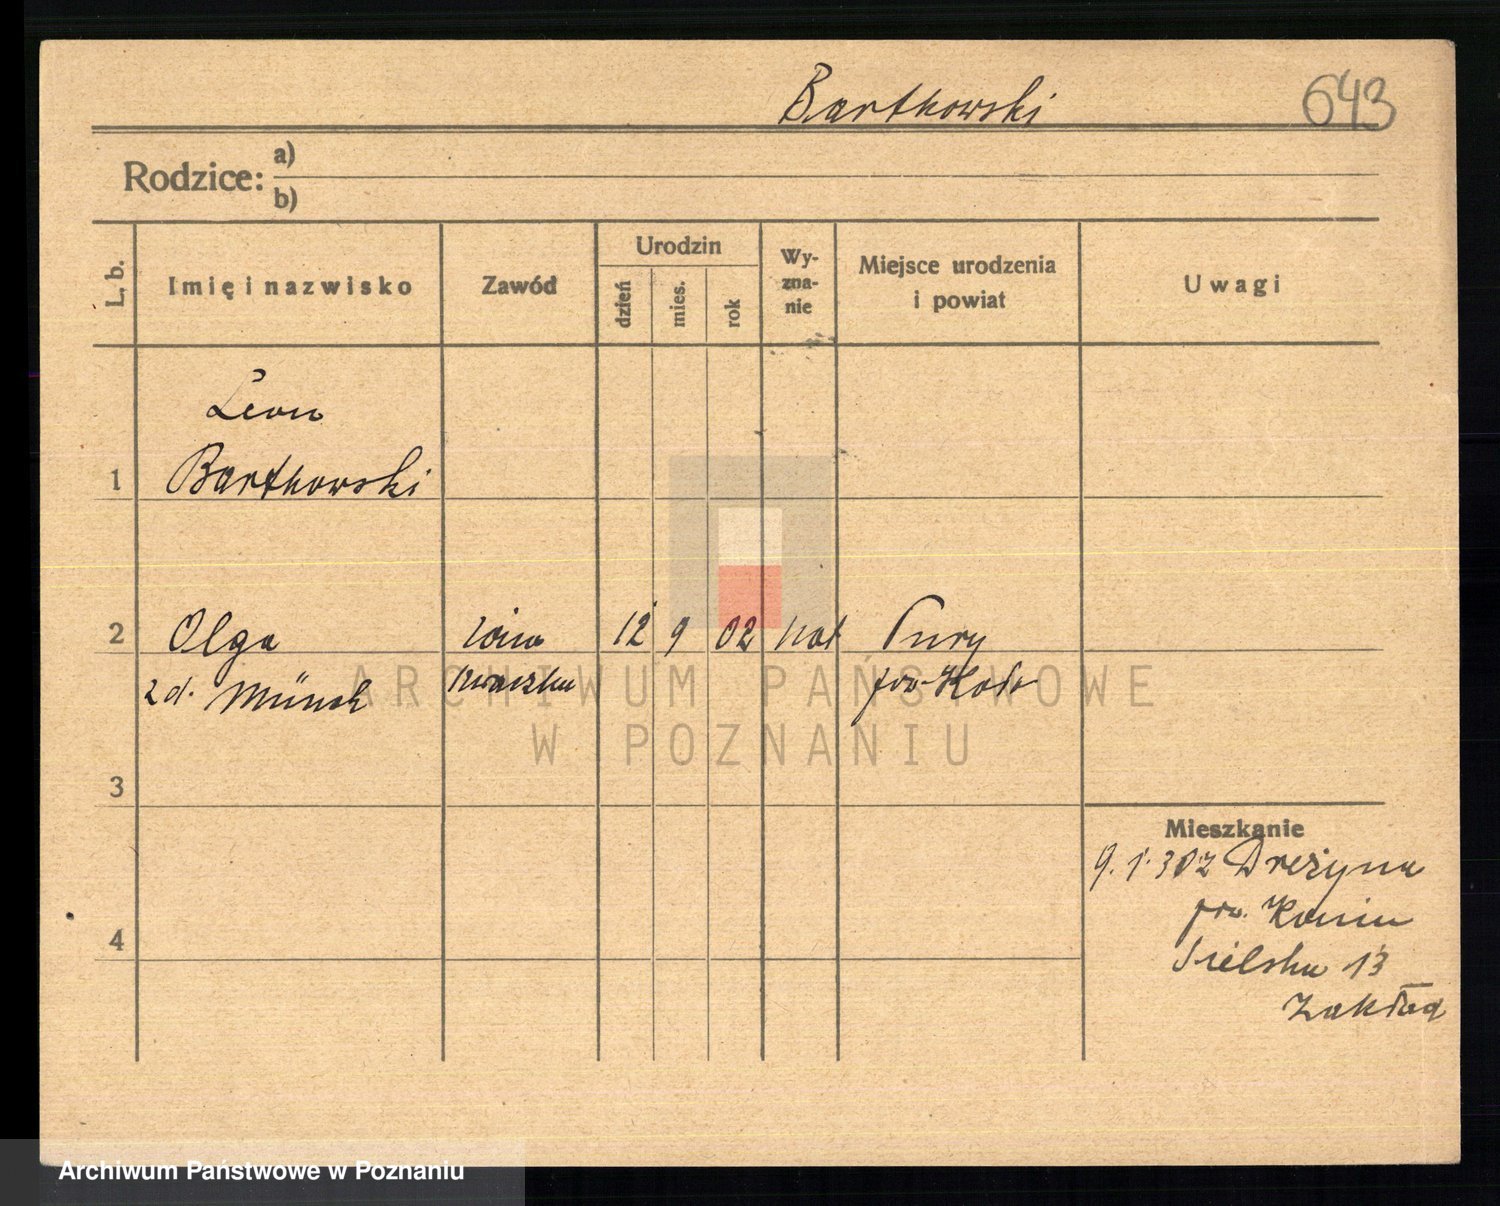 Bartkowski 643
Rodzice: a)
b)
L. b. Imię i nazwisko Zawód Urodzin dzień mies. rok Wy-zna-nie Miejsce urodzenia i powiat Uwagi
Leon
1 Bartkowski
2 Olga 12 9 02 kat Pury
2 d. Münch pow. Koło
3
Mieszkanie
9. 1. 302 Dreżyna
pow. Konin
Sielska 13
4
Zakład
ARCHIWUM PAŃSTWOWE
W POZNANIU
Archiwum Państwowe w Poznaniu